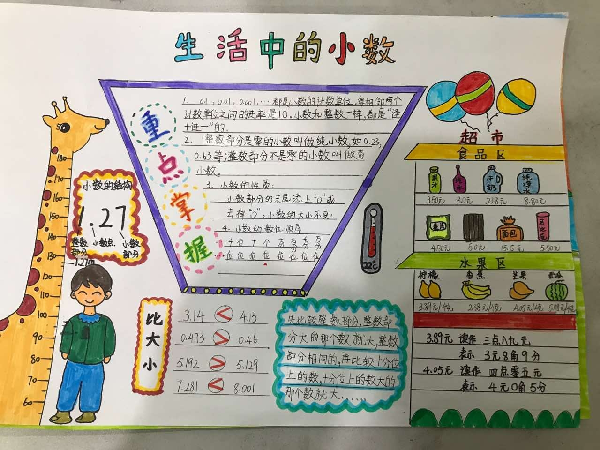 生活中的小数
重点掌握
1. 0.1, 0.01, 0.001, …都是小数的计数单位,每相邻两个
计数单位之间的进率是10,小数和整数一样,都是“逢
十进一”的.
2. 整数部分是零的小数叫做纯小数,如0.23,
0.65等;整数部分不是零的小数叫做
小数.
3. 小数的性质:
小数部分的末尾添上“0”或
去掉“0”,小数的大小不变.
4. 小数的数位顺序
小数的结构
1.27
整数部分 小数点 小数部分
120
110
100
90
80
70
60
比大小
3.14 < 4.13
5.192 > 5.129
1.281 < 8.001
先比较整数部分,整数部
分大的那个数就大,整数
部分相同的,再比较十分位
上的数,十分位上的数大的
那个数就大……
超市
食品区
面包
5.50元
水果区
柠檬 香蕉 芒果
3.89元 读作 三点八九元
表示 3元8角9分
4.05元 读作 四点零五元
表示 4元0角5分